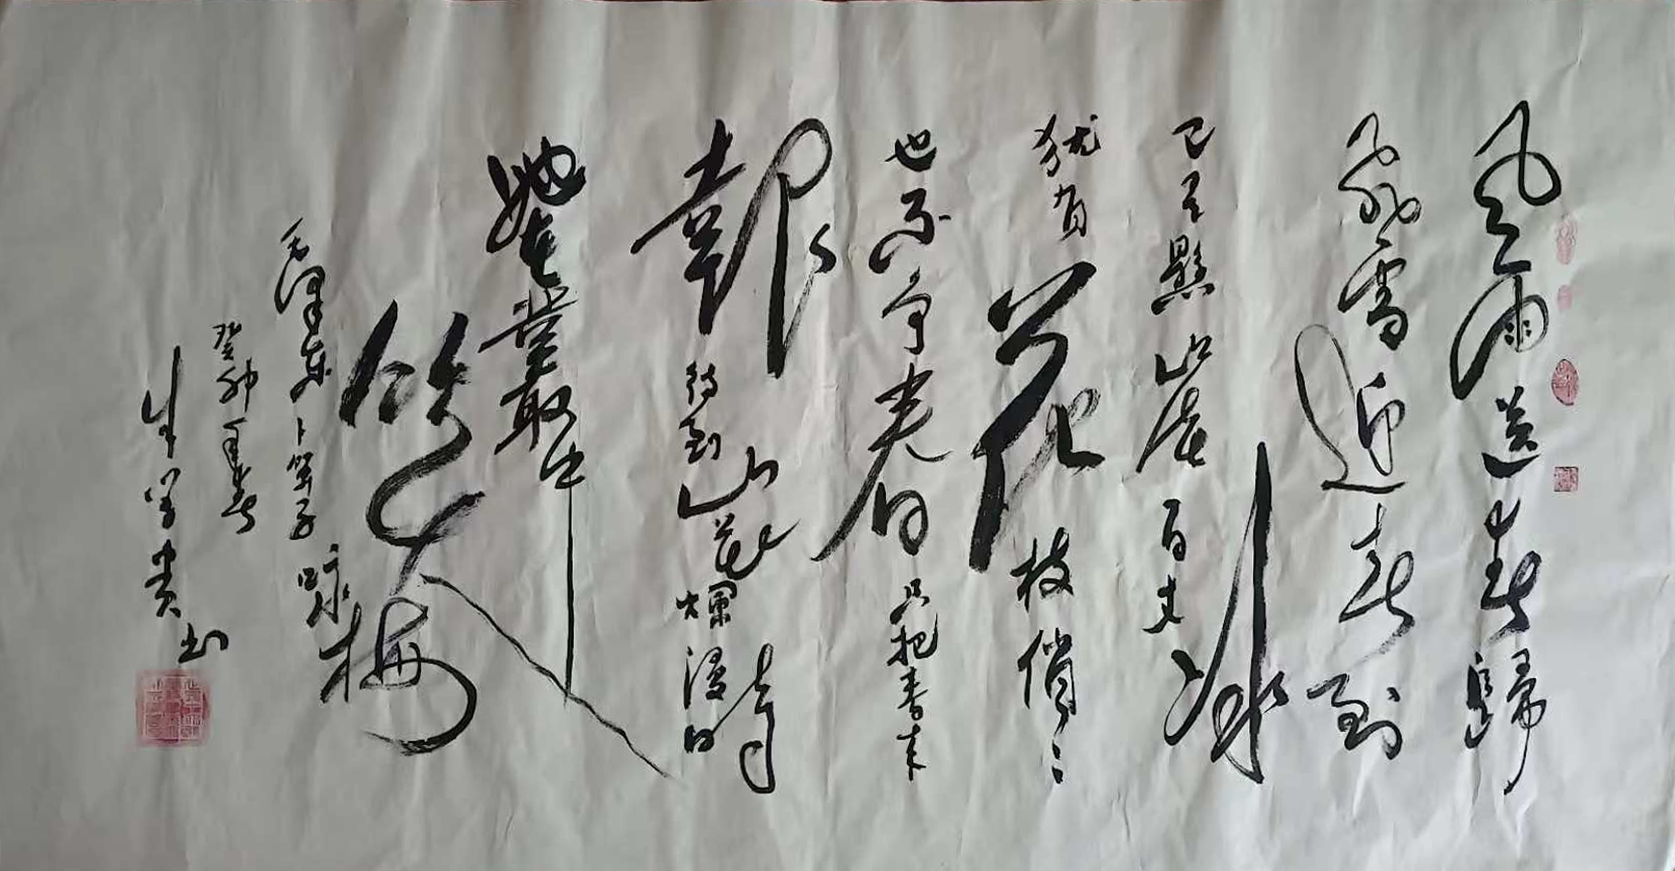 风雨送春歸
飛雪迎春到
已是懸崖百丈冰
犹有花枝俏〻
也不争春只把春来
報待到山花爛漫時
她在叢中
笑
毛澤东卜算子詠梅
癸卯春
书